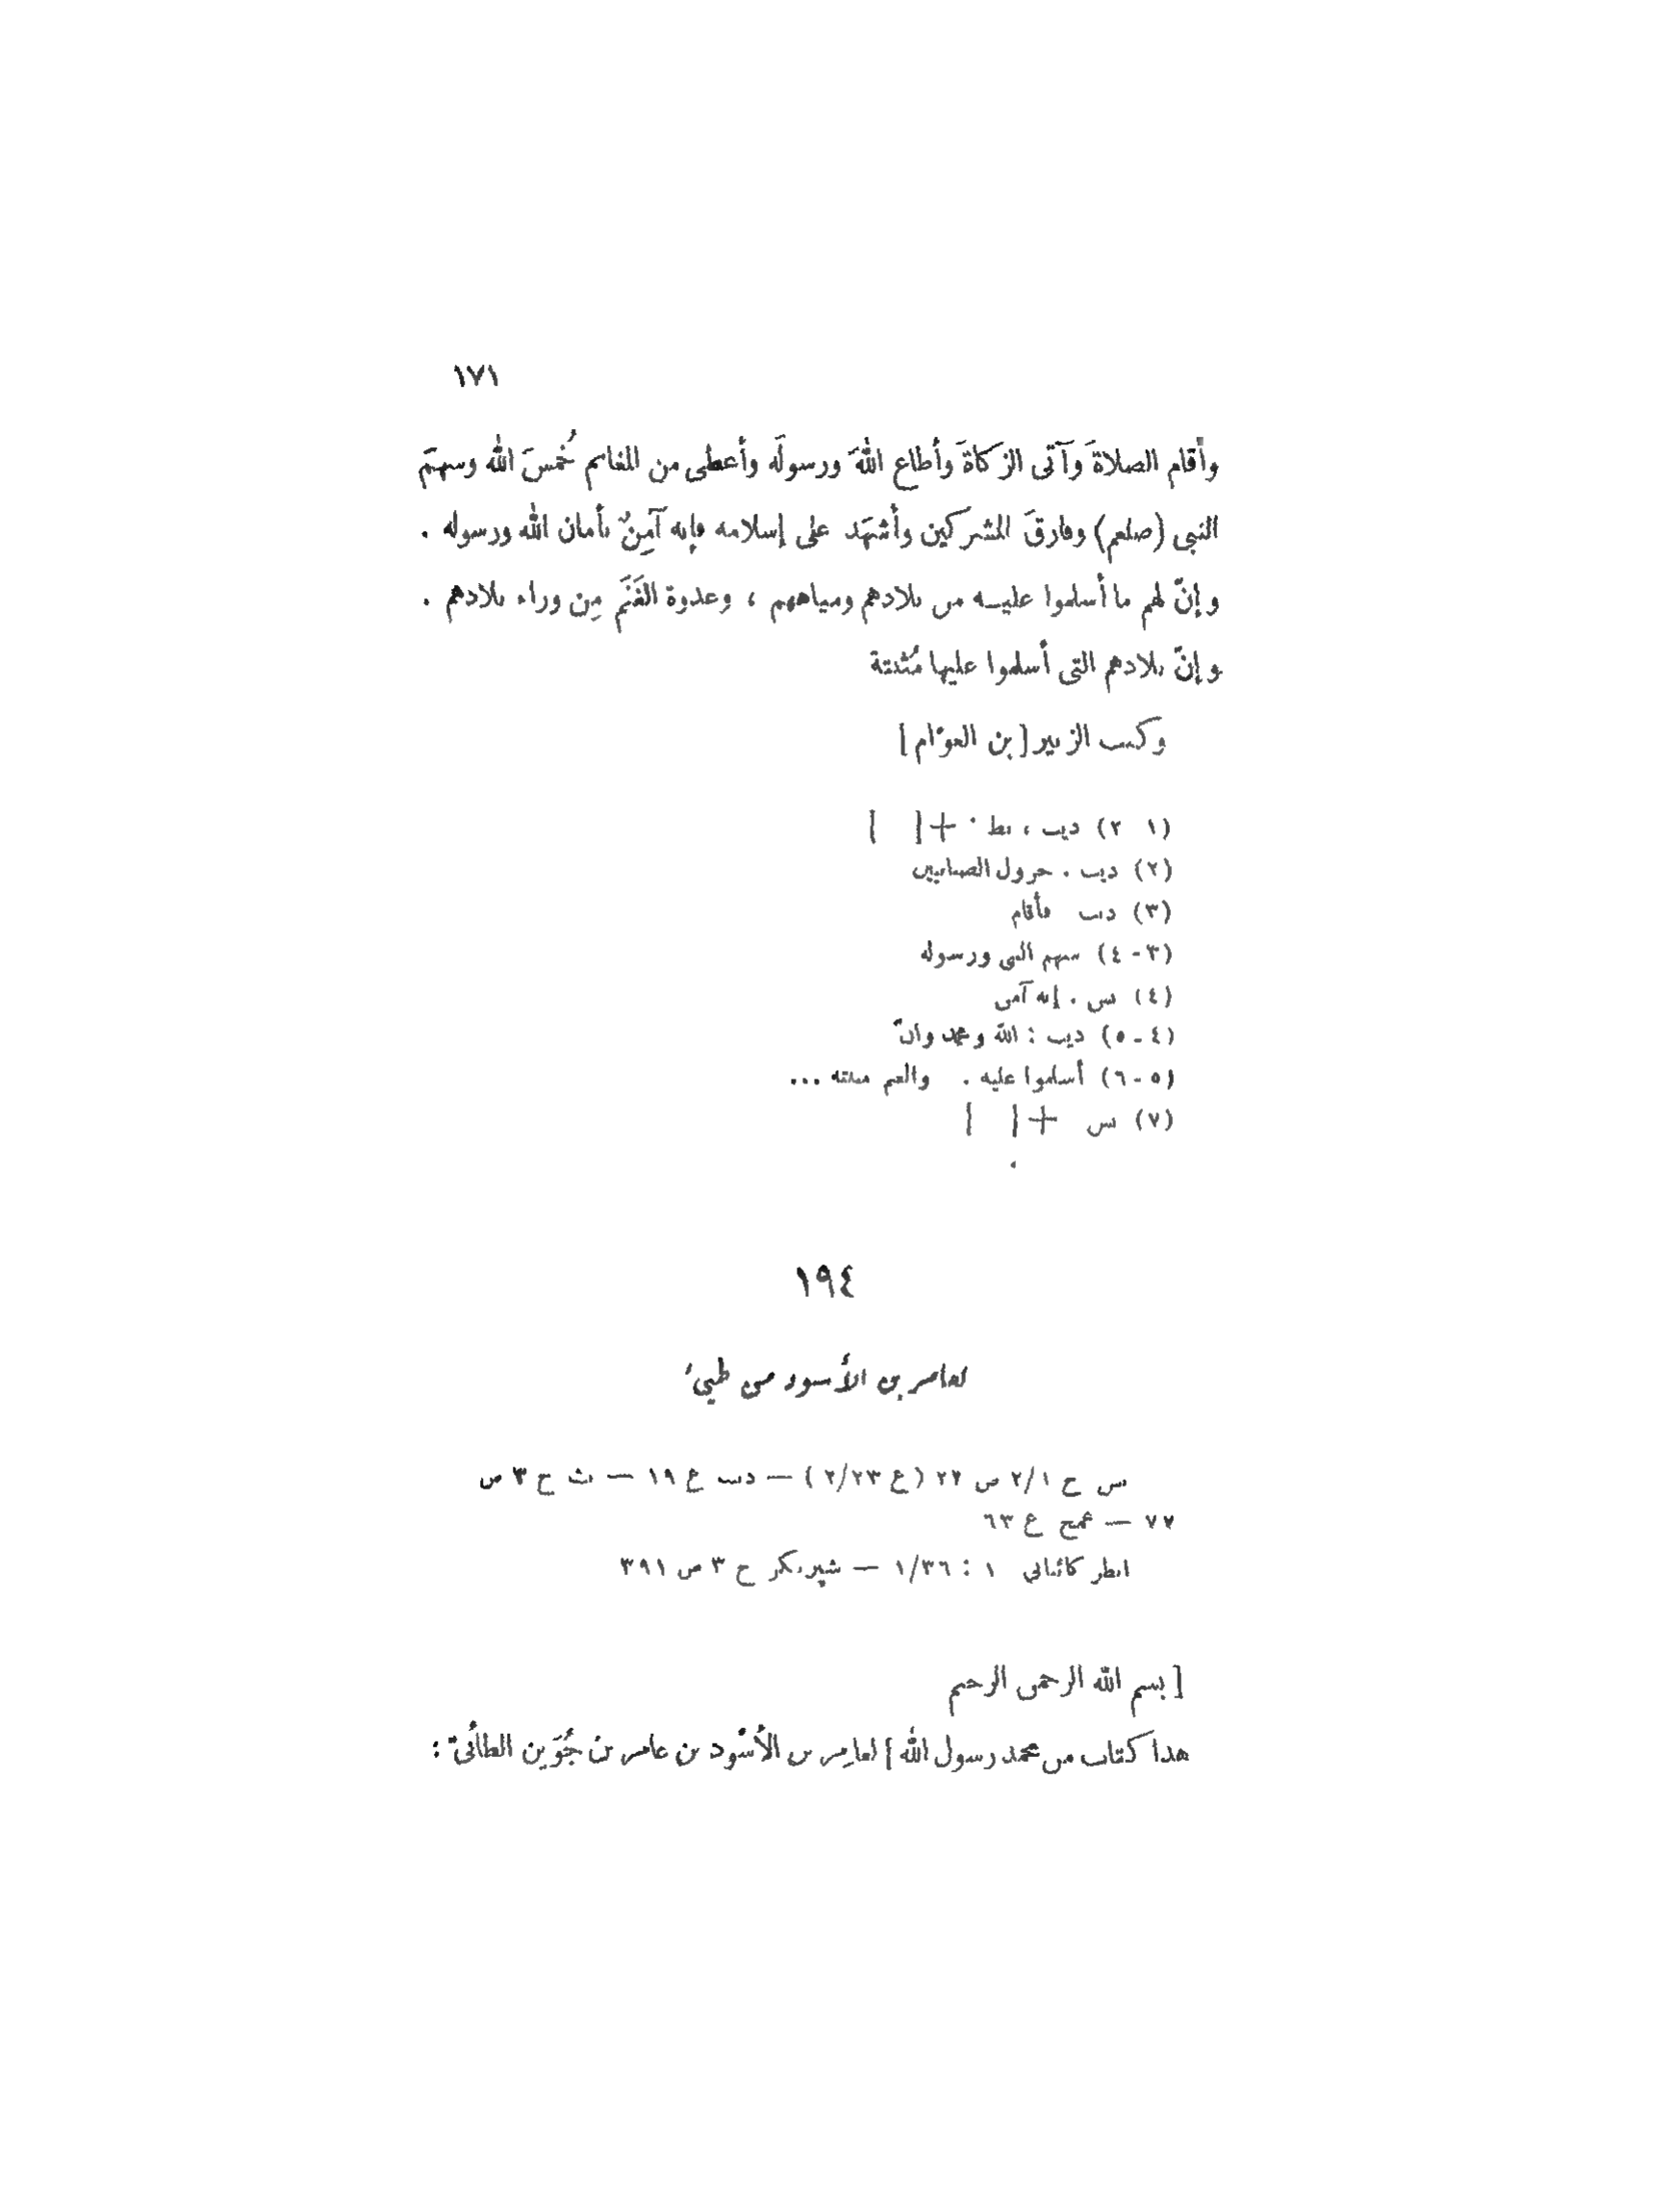 ١٧١
وأقام الصلاةَ وَآتَى الزكاةَ وأطاع اللهَ ورسولَه وأعطى من المغانم خُمسَ الله وسهمَ
النبى (صلعم) وفارقَ المشركين وأشهَد على إسلامه فإنه آمِنٌ بأمان الله ورسوله .
وإنّ لهم ما أسلموا عليـه من بلادهم ومياههم ، وغدوة الغَنَم مِن وراء بلادهم .
وإنّ بلادهم التى أسلموا عليها مُثبتة
وكتب الزبير [ بن العوّام ]
(١ ٢) ديب ، بط . + [ ]
(٢) ديب .
(٣) ديب فأقام
(٣-٤) سهم النبى ورسوله
(٤) بس . إنه آمن
(٤-٥) ديب : الله ومحمد وانّ
(٥-٦) أسلموا عليه . والغنم مبيته ...
(٧) بس + [ ]
١٩٤
لعامر بن الأسود من طيىء
بس ج ٢/١ ص ٢٢ (ع ٢/٢٣) — ديب ع ١٩ — بث ج ٣ ص
٧٧ — عمخ ع ٦٣
انظر كائتانى ١ : ١/٣٦ — شپرنكر ج ٣ ص ٣٩١
[ بسم الله الرحمن الرحيم
هذا كتاب من محمد رسول الله ] لعامِر بن الأسْود بن عامر بن جُوَين الطائىّ :